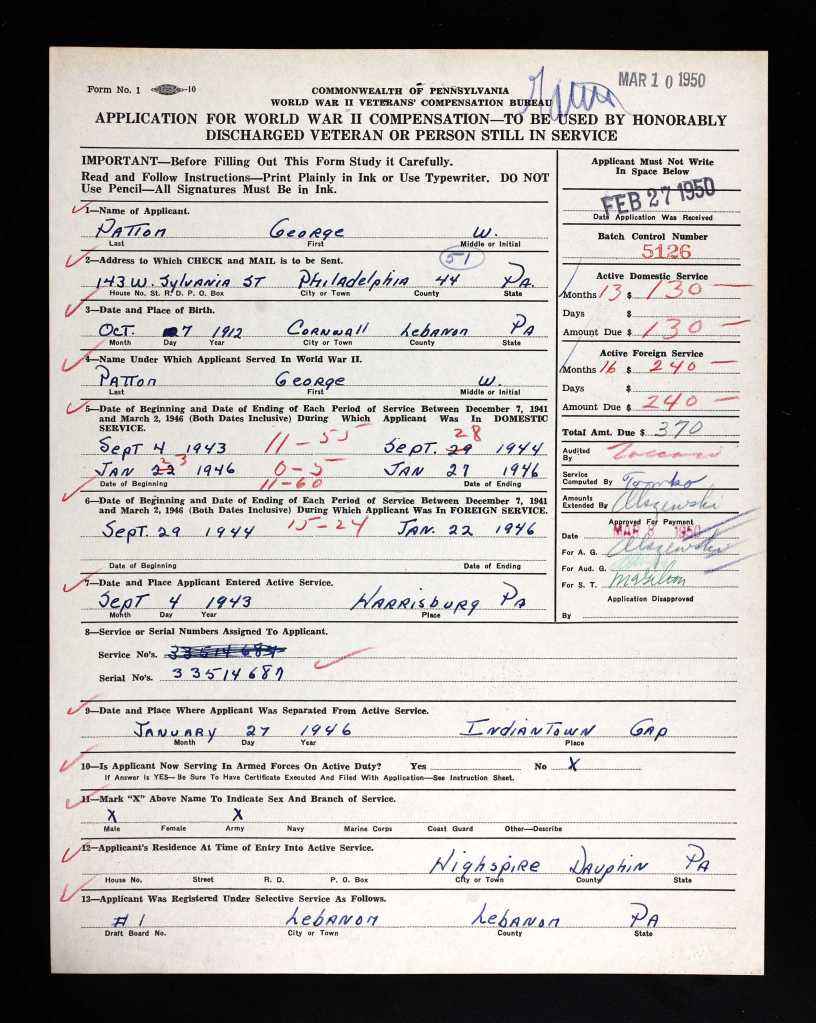 MAR 10 1950
Form No. 1 -10
COMMONWEALTH OF PENNSYLVANIA
WORLD WAR II VETERANS' COMPENSATION BUREAU
APPLICATION FOR WORLD WAR II COMPENSATION—TO BE USED BY HONORABLY
DISCHARGED VETERAN OR PERSON STILL IN SERVICE
IMPORTANT—Before Filling Out This Form Study it Carefully.
Read and Follow Instructions—Print Plainly in Ink or Use Typewriter. DO NOT
Use Pencil—All Signatures Must Be in Ink.
1—Name of Applicant.
PATTON GEORGE W.
Last First Middle or Initial
2—Address to Which CHECK and MAIL is to be Sent. 51
143 W. Sylvania ST Philadelphia 44 Pa.
House No. St. R. D. P. O. Box City or Town County State
3—Date and Place of Birth.
Oct. 7 1912 Cornwall Lebanon Pa
Month Day Year City or Town County State
4—Name Under Which Applicant Served In World War II.
Patton George W.
Last First Middle or Initial
5—Date of Beginning and Date of Ending of Each Period of Service Between December 7, 1941
and March 2, 1946 (Both Dates Inclusive) During Which Applicant Was In DOMESTIC
SERVICE.
28
Sept 4 1943 11-55 Sept. 29 1944
23
Jan 22 1946 0-5 Jan 27 1946
Date of Beginning 11-60 Date of Ending
6—Date of Beginning and Date of Ending of Each Period of Service Between December 7, 1941
and March 2, 1946 (Both Dates Inclusive) During Which Applicant Was In FOREIGN SERVICE.
Sept. 29 1944 15-24 Jan. 22 1946
Date of Beginning Date of Ending
7—Date and Place Applicant Entered Active Service.
Sept 4 1943 Harrisburg Pa
Month Day Year Place
8—Service or Serial Numbers Assigned To Applicant.
Service No's.
Serial No's. 33514687
9—Date and Place Where Applicant Was Separated From Active Service.
January 27 1946 Indiantown Gap
Month Day Year Place
10—Is Applicant Now Serving In Armed Forces On Active Duty? Yes No X
If Answer is YES—Be Sure To Have Certificate Executed And Filed With Application—See Instruction Sheet.
11—Mark "X" Above Name To Indicate Sex and Branch of Service.
X X
Male Female Army Navy Marine Corps Coast Guard Other—Describe
12—Applicant's Residence At Time of Entry Into Active Service.
Highspire Dauphin Pa
House No. Street R. D. P. O. Box City or Town County State
13—Applicant Was Registered Under Selective Service As Follows.
#1 Lebanon Lebanon Pa
Draft Board No. City or Town County State
Applicant Must Not Write
In Space Below
FEB 27 1950
Date Application Was Received
Batch Control Number
5126
Active Domestic Service
Months 13 $ 130 —
Days $
Amount Due $ 130 —
Active Foreign Service
Months 16 $ 240 —
Days $
Amount Due $ 240 —
Total Amt. Due $ 370
Audited
By
Service
Computed By Tombo
Amounts
Extended By Olszewski
Approved For Payment
Date MAR 8 1950
For A. G. Olszewski
For Aud. G.
For S. T.
Application Disapproved
By